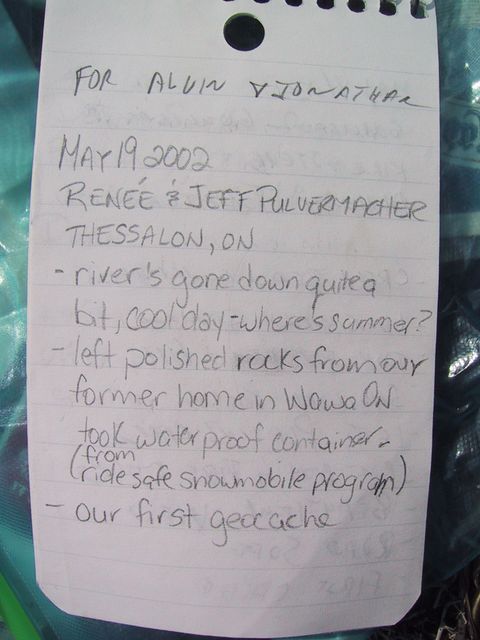 FOR ALVIN & JONATHAN
MAY 19 2002
RENEÉ & JEFF PULVERMACHER
THESSALON, ON
- river's gone down quite a
bit, cool day - where's summer?
- left polished rocks from our
former home in Wawa ON
took waterproof container -
(from
ride safe snowmobile program)
- our first geocache